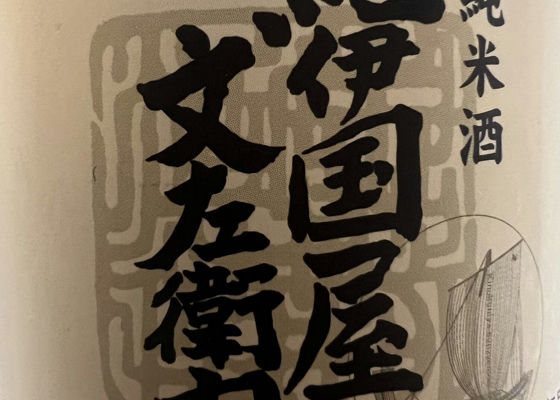 純米酒
紀伊国屋
文左衛門